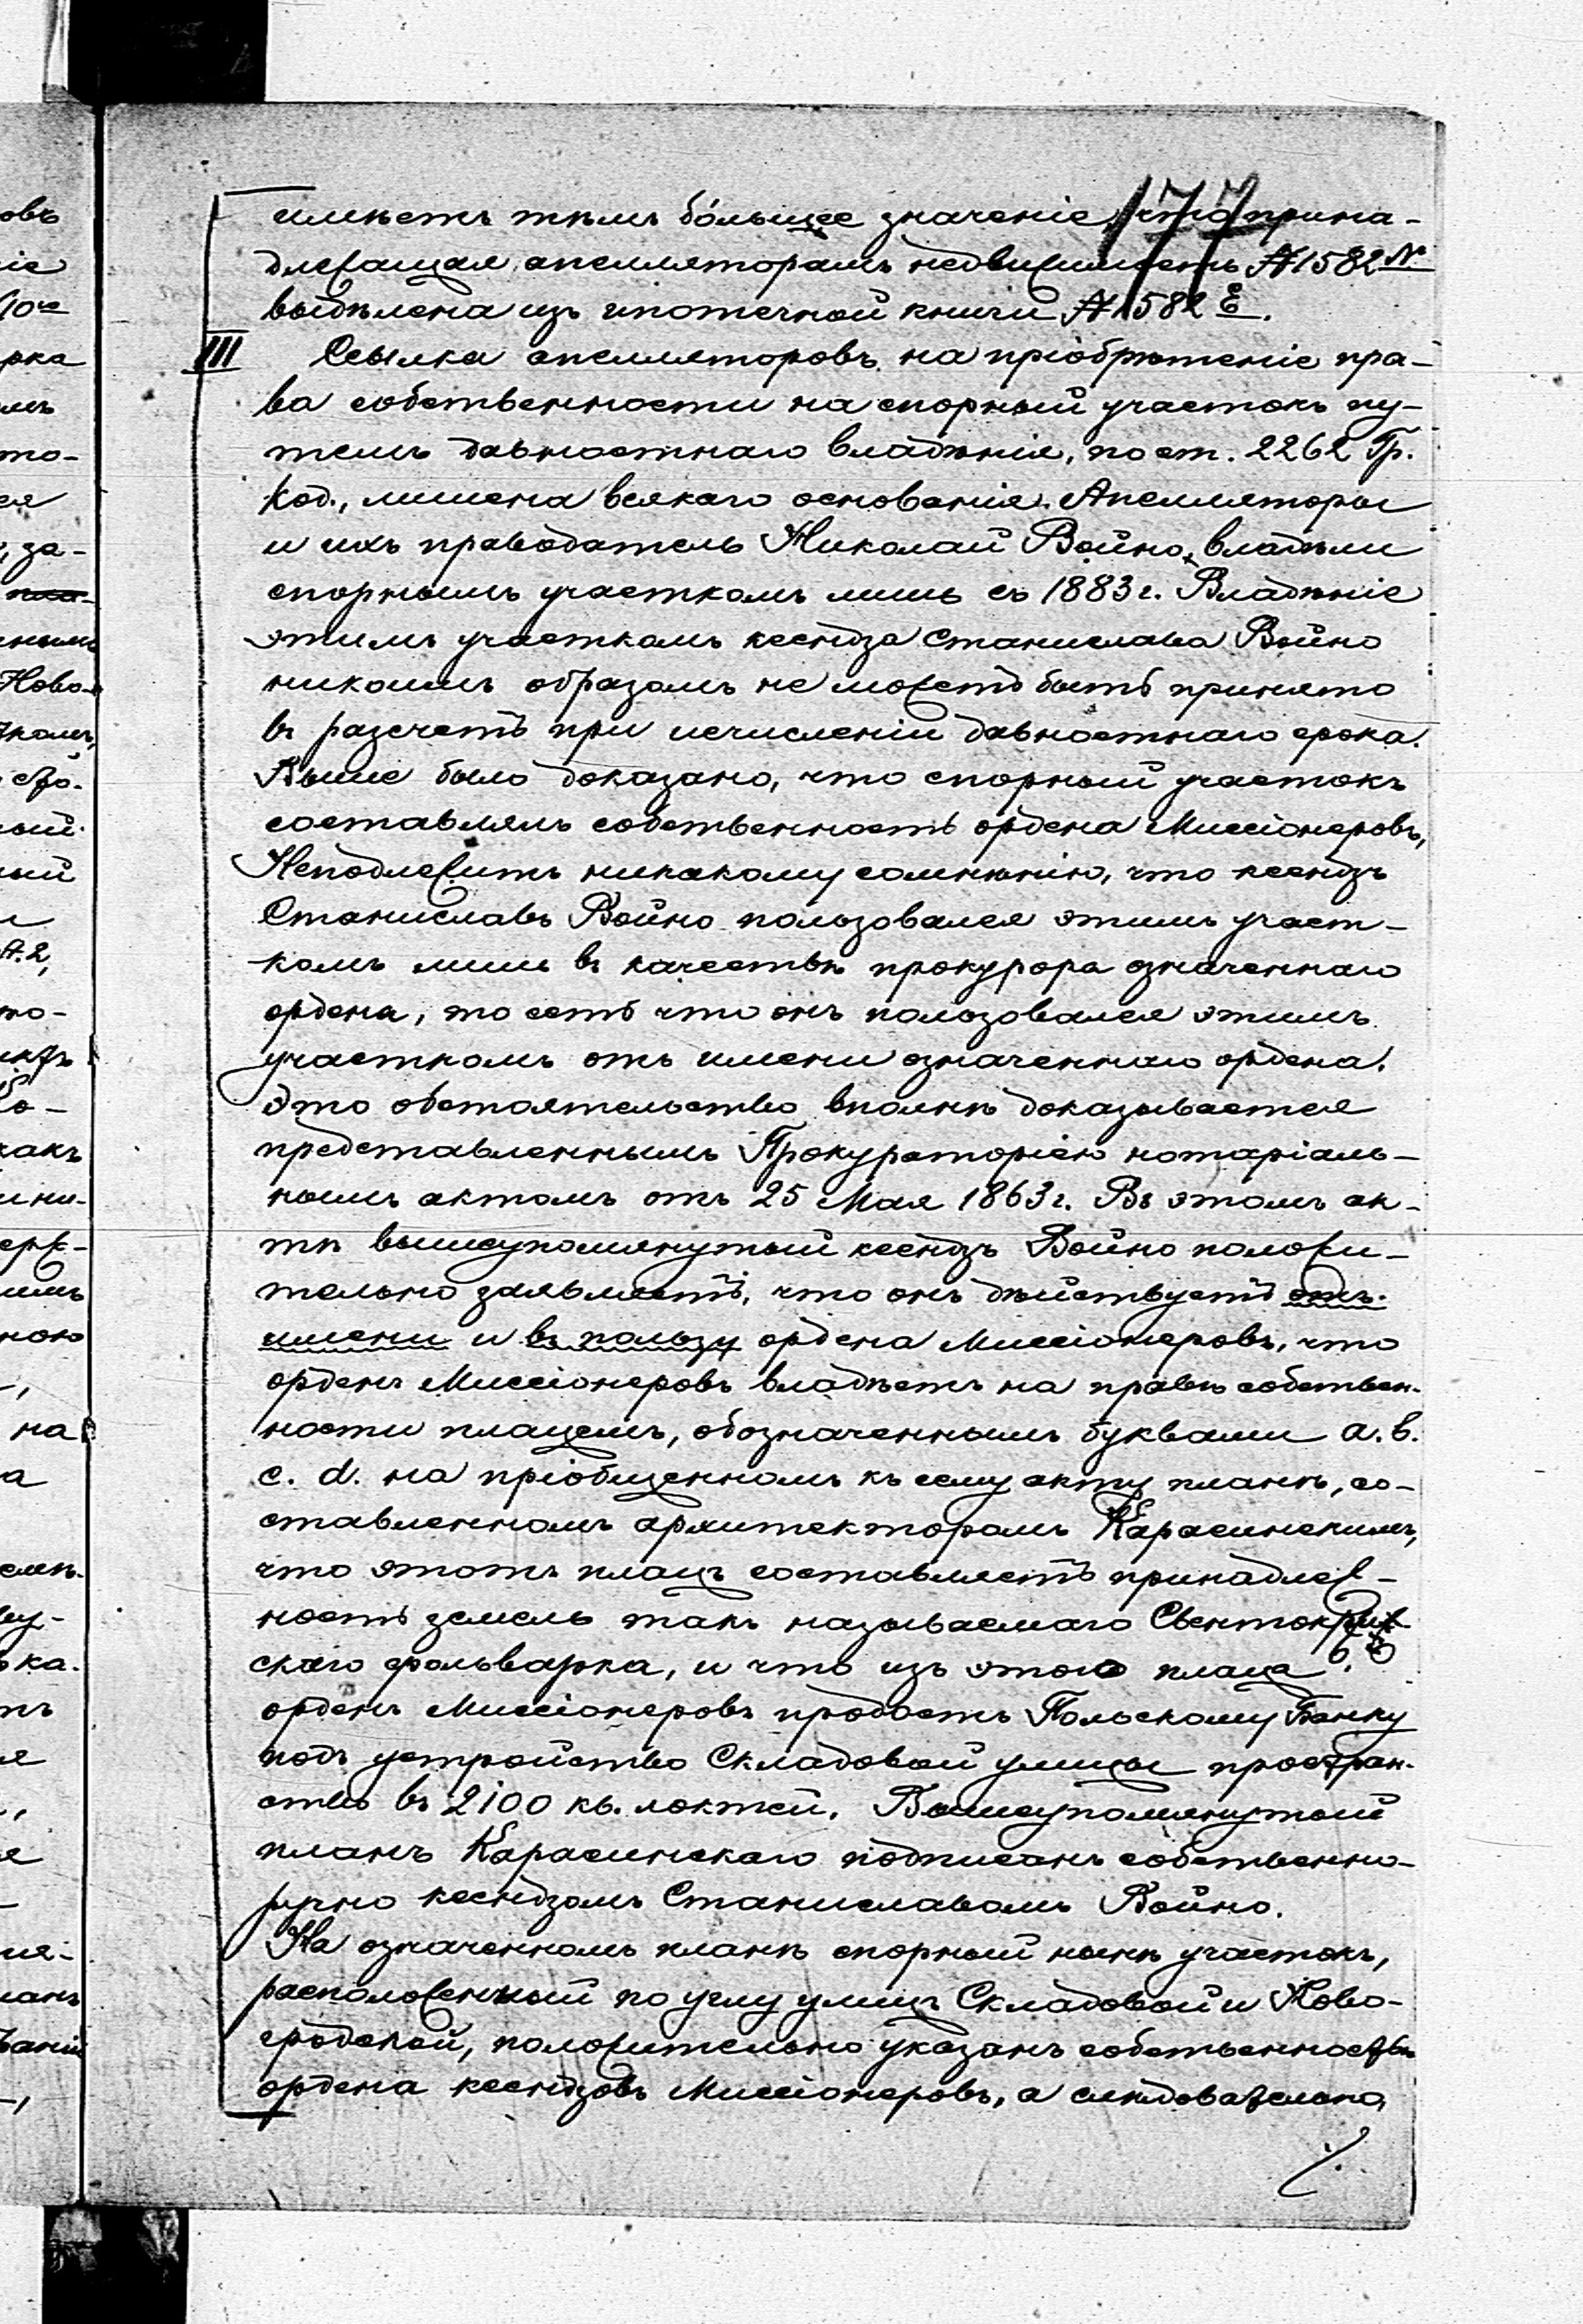 177
имѣетъ тѣмъ бо́льшее значеніе, что прина-
длежащая апелляторамъ недвижимость № 1582 N
выдѣлена изъ ипотечной книги № 1582 E.
III Ссылка апелляторовъ на пріобрѣтеніе пра-
ва собственности на спорный участокъ пу-
темъ давностнаго владѣнія, по ст. 2262 Гр.
Код., лишена всякаго основанія. Апелляторы
и ихъ праводатель Николай Войно, владѣли
спорнымъ участкомъ лишь съ 1883 г. Владѣніе
этимъ участкомъ ксендза Станислава Войно
никоимъ образомъ не можетъ быть принято
въ разсчетъ при исчисленіи давностнаго срока.
Выше было доказано, что спорный участокъ
составлялъ собственность ордена Миссіонеровъ,
Неподлежитъ никакому сомнѣнію, что ксендзъ
Станиславъ Войно пользовался этимъ участ-
комъ лишь въ качествѣ прокурора означеннаго
ордена, то есть что онъ пользовался этимъ
участкомъ отъ имени означеннаго ордена.
Это обстоятельство вполнѣ доказывается
представленнымъ Прокураторіею нотаріаль-
нымъ актомъ отъ 25 Мая 1863 г. Въ этомъ ак-
тѣ вышеупомянутый ксендзъ Войно положи-
тельно заявляетъ, что онъ дѣйствуетъ отъ
имени и въ пользу ордена Миссіонеровъ, что
орденъ Миссіонеровъ владѣетъ на правѣ собствен-
ности плацемъ, обозначеннымъ буквами a. b.
c. d. на пріобщенномъ къ сему акту планѣ, со-
ставленномъ архитекторомъ Карасинскимъ,
что этотъ плацъ составляетъ принадлеж-
ность земель такъ называемаго Свентокриж-
скаго фольварка, и что изъ этого плаца
орденъ Миссіонеровъ продастъ Польскому Банку
подъ устройство Складовой улицы простран-
ство въ 2100 кв. локтей. Вышеупомянутый
планъ Карасинскаго подписанъ собственно-
ручно ксендзомъ Станиславомъ Войно.
На означенномъ планѣ спорный нынѣ участокъ,
расположенный по углу улицъ Складовой и Ново-
гродской, положительно указанъ собственностью
ордена ксендзовъ Миссіонеровъ, а слѣдовательно,
./.